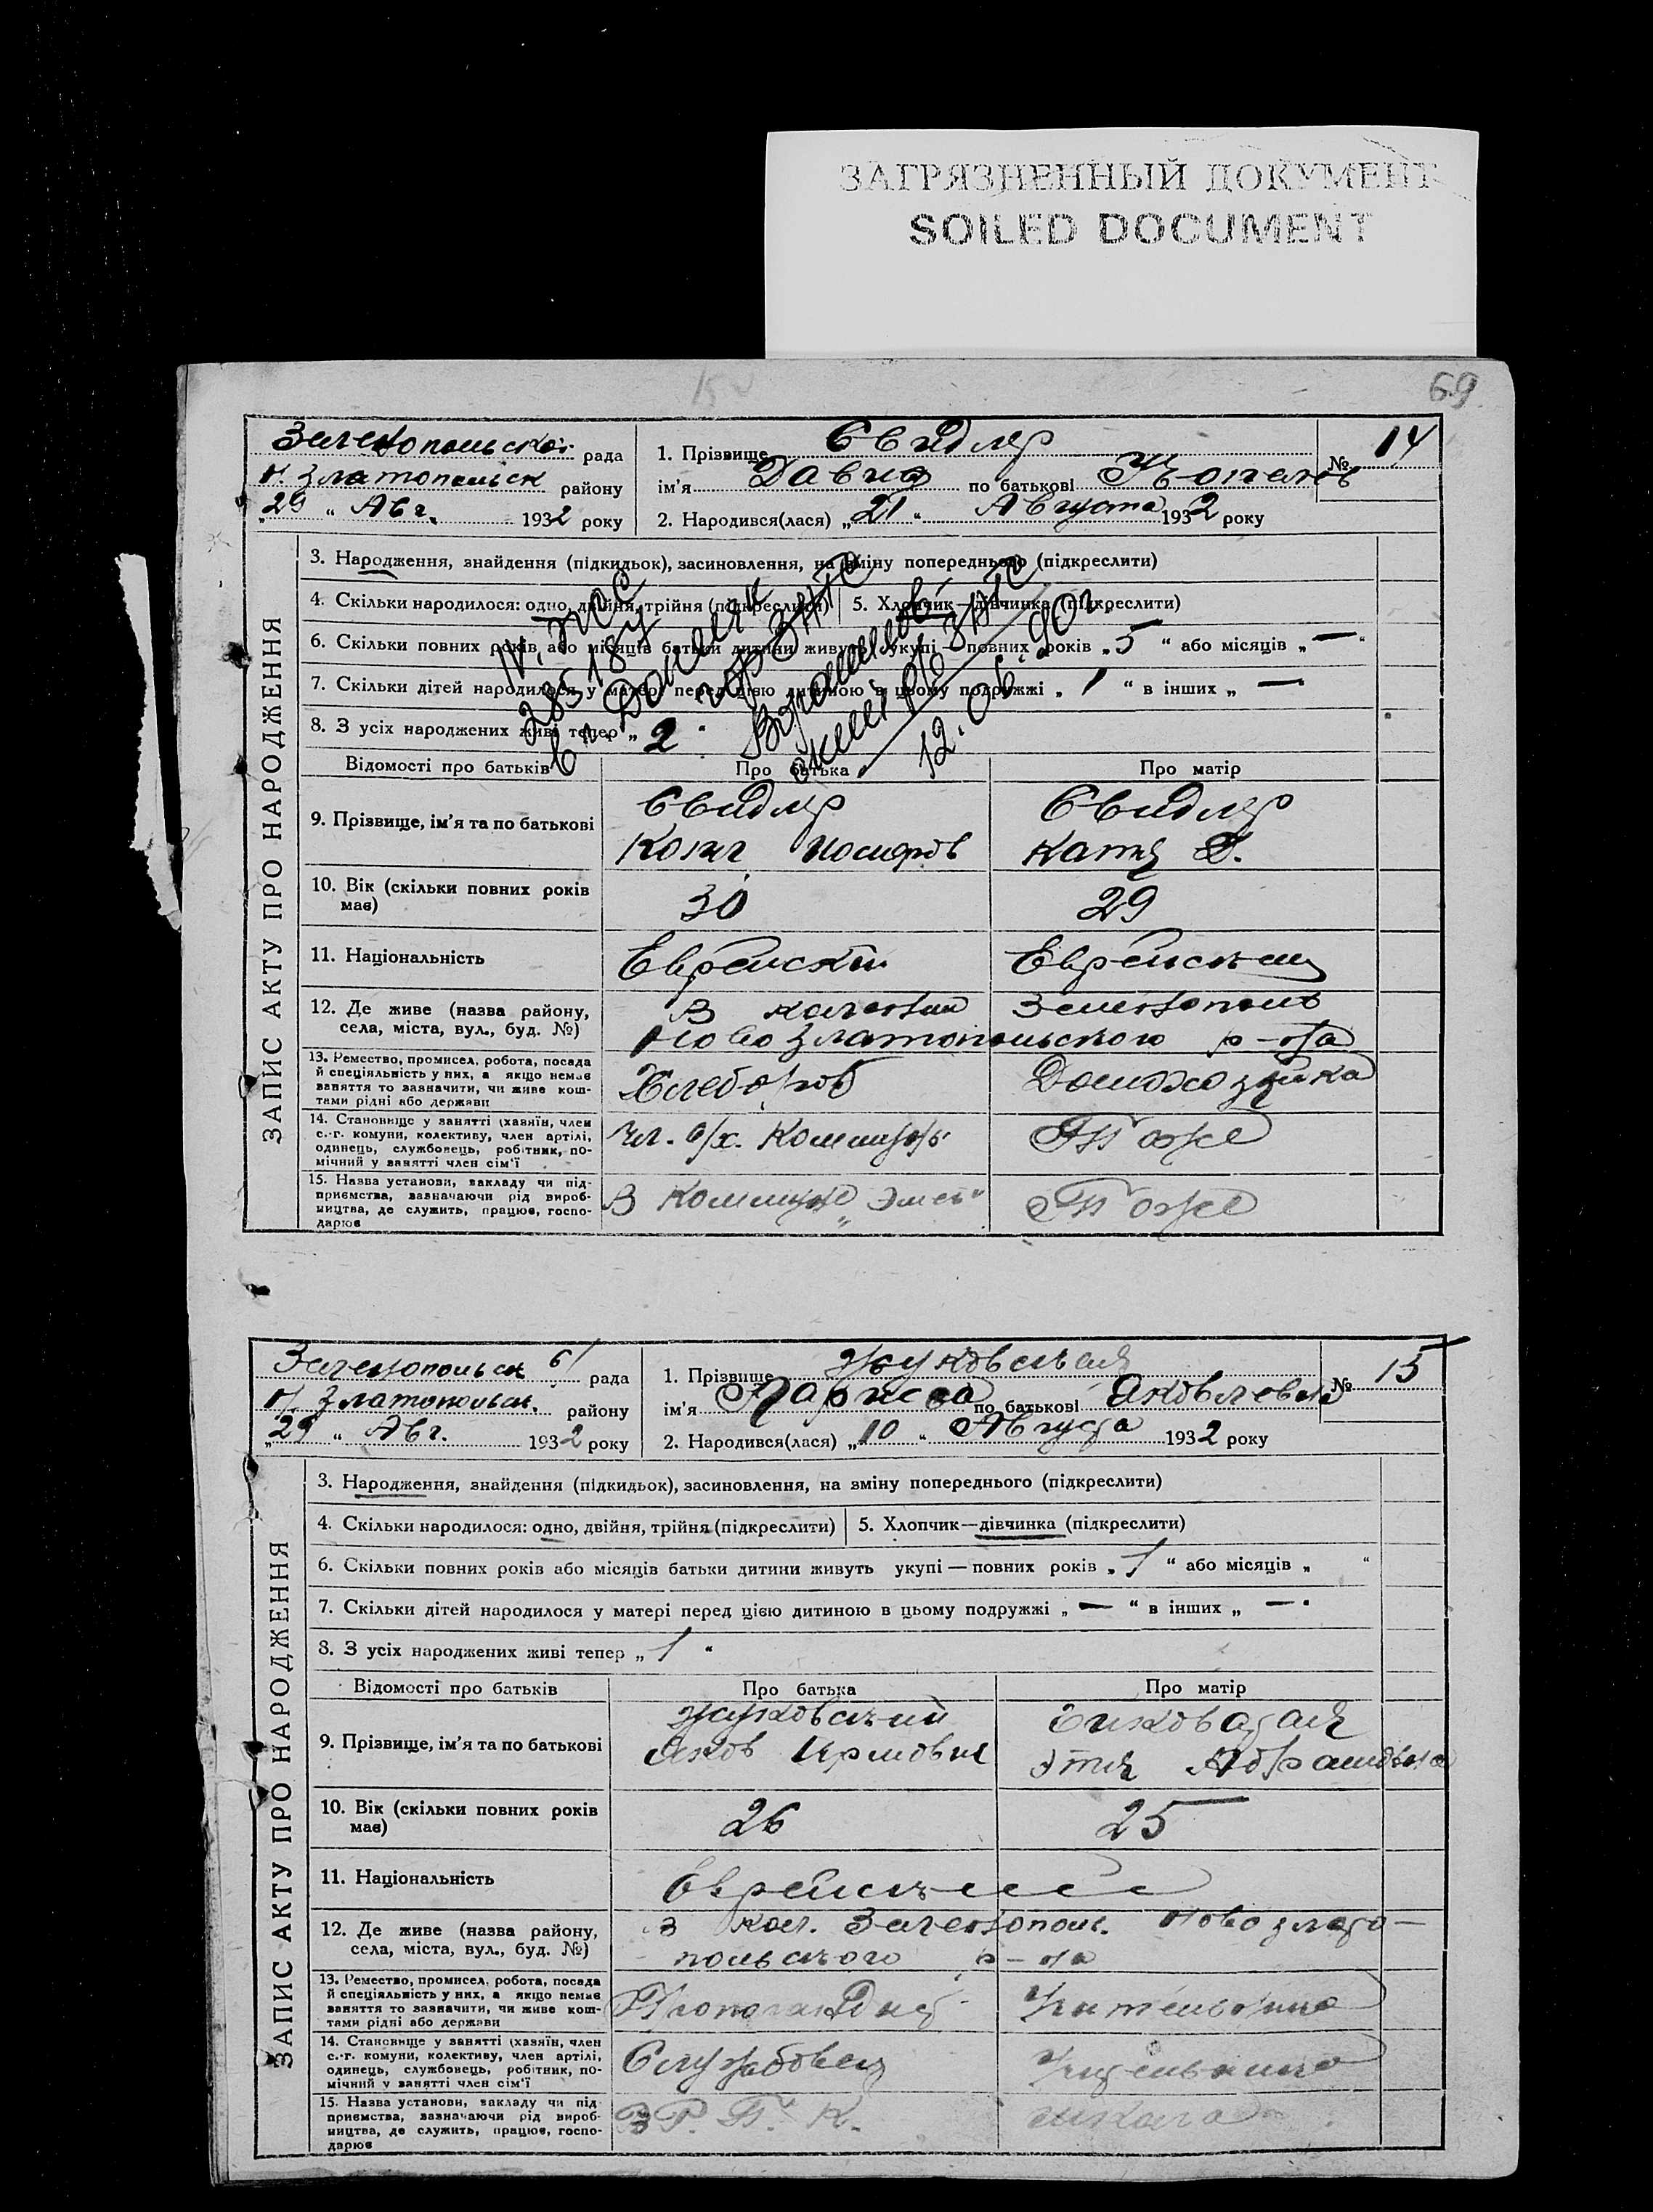 ЗАГРЯЗНЕННЫЙ ДОКУМЕНТ
SOILED DOCUMENT
69
рада
Н. Златопольск району
„29“ Авг. 1932 року
1. Прізвище Свидлер
ім'я Давид по батькові
2. Народився(лася) „21“ Августа 1932 року
№ 14
ЗАПИС АКТУ ПРО НАРОДЖЕННЯ
3. Народження, знайдення (підкидьок), засиновлення, на зміну попереднього (підкреслити)
4. Скільки народилося: одно, двійня, трійня (підкреслити) 5. Хлопчик—дівчинка (підкреслити)
6. Скільки повних років або місяців батьки дитини живуть укупі — повних років „5“ або місяців „—“
7. Скільки дітей народилося у матері перед цією дитиною в цьому подружжі „1“ в інших „—“
8. З усіх народжених живі тепер „2“
12.06.40 г.
Відомості про батьків Про батька Про матір
9. Прізвище, ім'я та по батькові
Свидлер Свидлер
Катя
10. Вік (скільки повних років має) 30 29
11. Національність Еврейский Еврейская
12. Де живе (назва району, села, міста, вул., буд. №)
В колонии Зеленополь
Ново Златопольского р-на
13. Ремество, промисел, робота, посада й спеціяльність у них, а якщо немає заняття то зазначити, чи живе коштами рідні або держави
Хлебороб Домохозяйка
14. Становище у занятті (хазяїн, член с.-г. комуни, колективу, член артілі, одинець, службовець, робітник, помічний у занятті член сім'ї
Чл. с/х. Коммуны Тоже
15. Назва установи, закладу чи підприємства, зазначаючи рід виробництва, де служить, працює, господарює
В Коммуне „Эмес“ Тоже
Зеленопольск с/ рада
Н/ Златопольск. району
„29“ Авг. 1932 року
1. Прізвище Жуковская
ім'я Лариса по батькові Яковлевна
2. Народився(лася) „10“ Августа 1932 року
№ 15
ЗАПИС АКТУ ПРО НАРОДЖЕННЯ
3. Народження, знайдення (підкидьок), засиновлення, на зміну попереднього (підкреслити)
4. Скільки народилося: одно, двійня, трійня (підкреслити) 5. Хлопчик—дівчинка (підкреслити)
6. Скільки повних років або місяців батьки дитини живуть укупі — повних років „1“ або місяців „ “
7. Скільки дітей народилося у матері перед цією дитиною в цьому подружжі „—“ в інших „—“
8. З усіх народжених живі тепер „1“
Відомості про батьків Про батька Про матір
9. Прізвище, ім'я та по батькові
Жуковский
Яков Этля Абрамовна
10. Вік (скільки повних років має) 26 25
11. Національність Еврейские
12. Де живе (назва району, села, міста, вул., буд. №)
В кол. Зеленополь. Ново злато-
польского р-на
13. Ремество, промисел, робота, посада й спеціяльність у них, а якщо немає заняття то зазначити, чи живе коштами рідні або держави
Пропогандист Учительница
14. Становище у занятті (хазяїн, член с.-г. комуни, колективу, член артілі, одинець, службовець, робітник, помічний у занятті член сім'ї
Службовец Учительница
15. Назва установи, закладу чи підприємства, зазначаючи рід виробництва, де служить, працює, господарює
В Р. П. К. школа